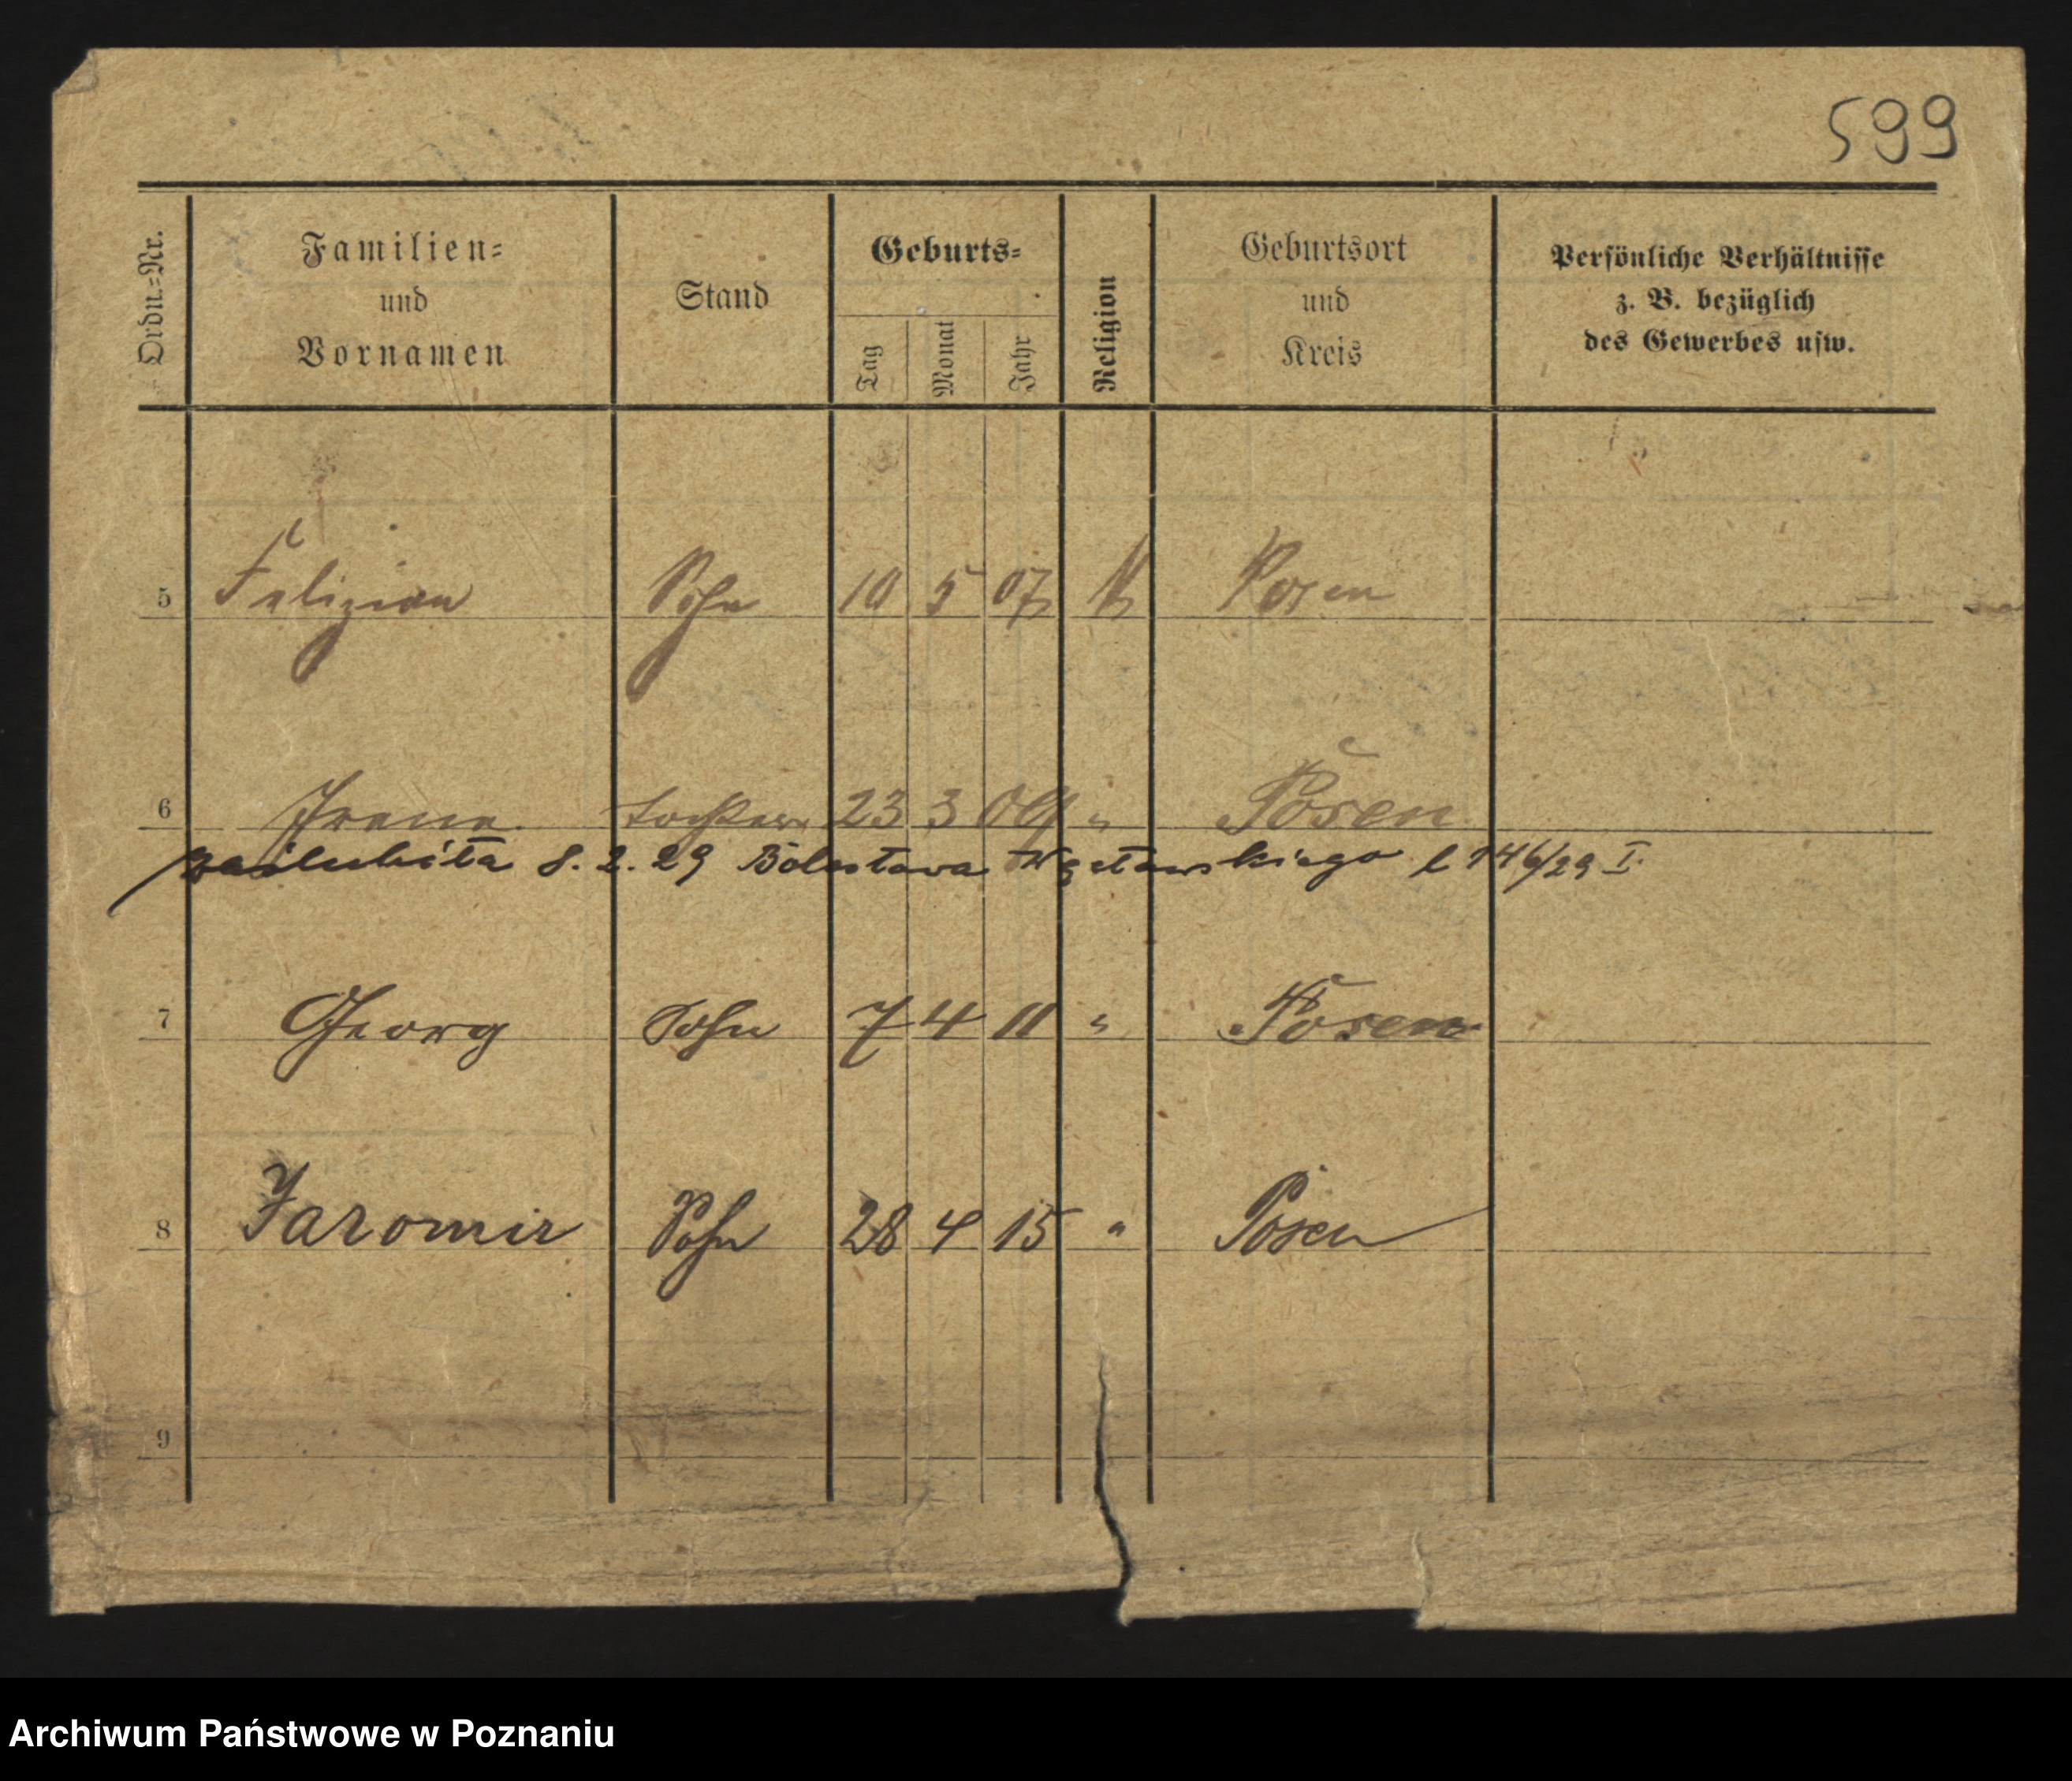 599
Ordn.-Nr.
Familien-
und
Vornamen
Stand
Geburts-
Tag
Monat
Jahr
Religion
Geburtsort
und
Kreis
Persönliche Verhältnisse
z. B. bezüglich
des Gewerbes usw.
5 Felizian Sohn 10 5 07 k Posen
6 Irene Tochter 23 3 09 " Posen
zaślubiła 8. 2. 29 Bolesława l 146/29 I.
7 Georg Sohn 7 4 11 " Posen
8 Jaromir Sohn 28 4 15 " Posen
9
Archiwum Państwowe w Poznaniu